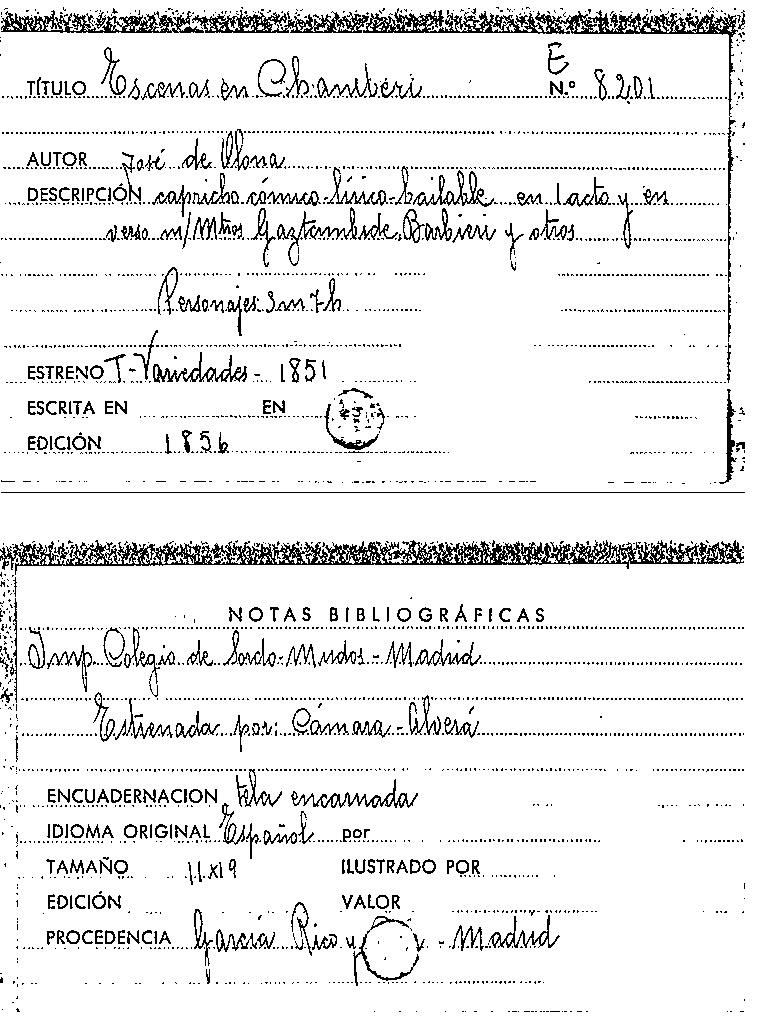 E
TÍTULO Escenas en Chamberi N.º 8201
AUTOR José de Olona
DESCRIPCIÓN capricho cómico-lírico-bailable en 1 acto y en
verso m/Mtros Gaztambide, Barbieri y otros
Personajes: 3m 7h
ESTRENO T-Variedades - 1851
ESCRITA EN EN
EDICIÓN 1856
NOTAS BIBLIOGRÁFICAS
Imp. Colegio de Sordo-Mudos - Madrid
Estrenada por: Cámara - Alverá
ENCUADERNACION tela encarnada
IDIOMA ORIGINAL Español por
TAMAÑO 11x19 ILUSTRADO POR
EDICIÓN VALOR
PROCEDENCIA García Rico y - Madrid